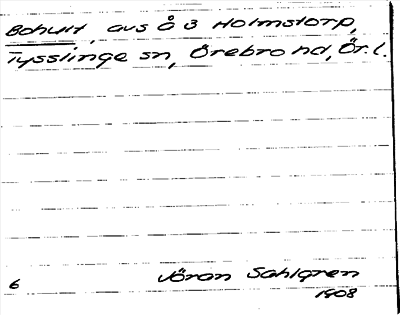 Bohult, avs å 3 Holmstorp,
Tysslinge sn, Örebro hd, Ör. l.
Jöran Sahlgren
6
1908